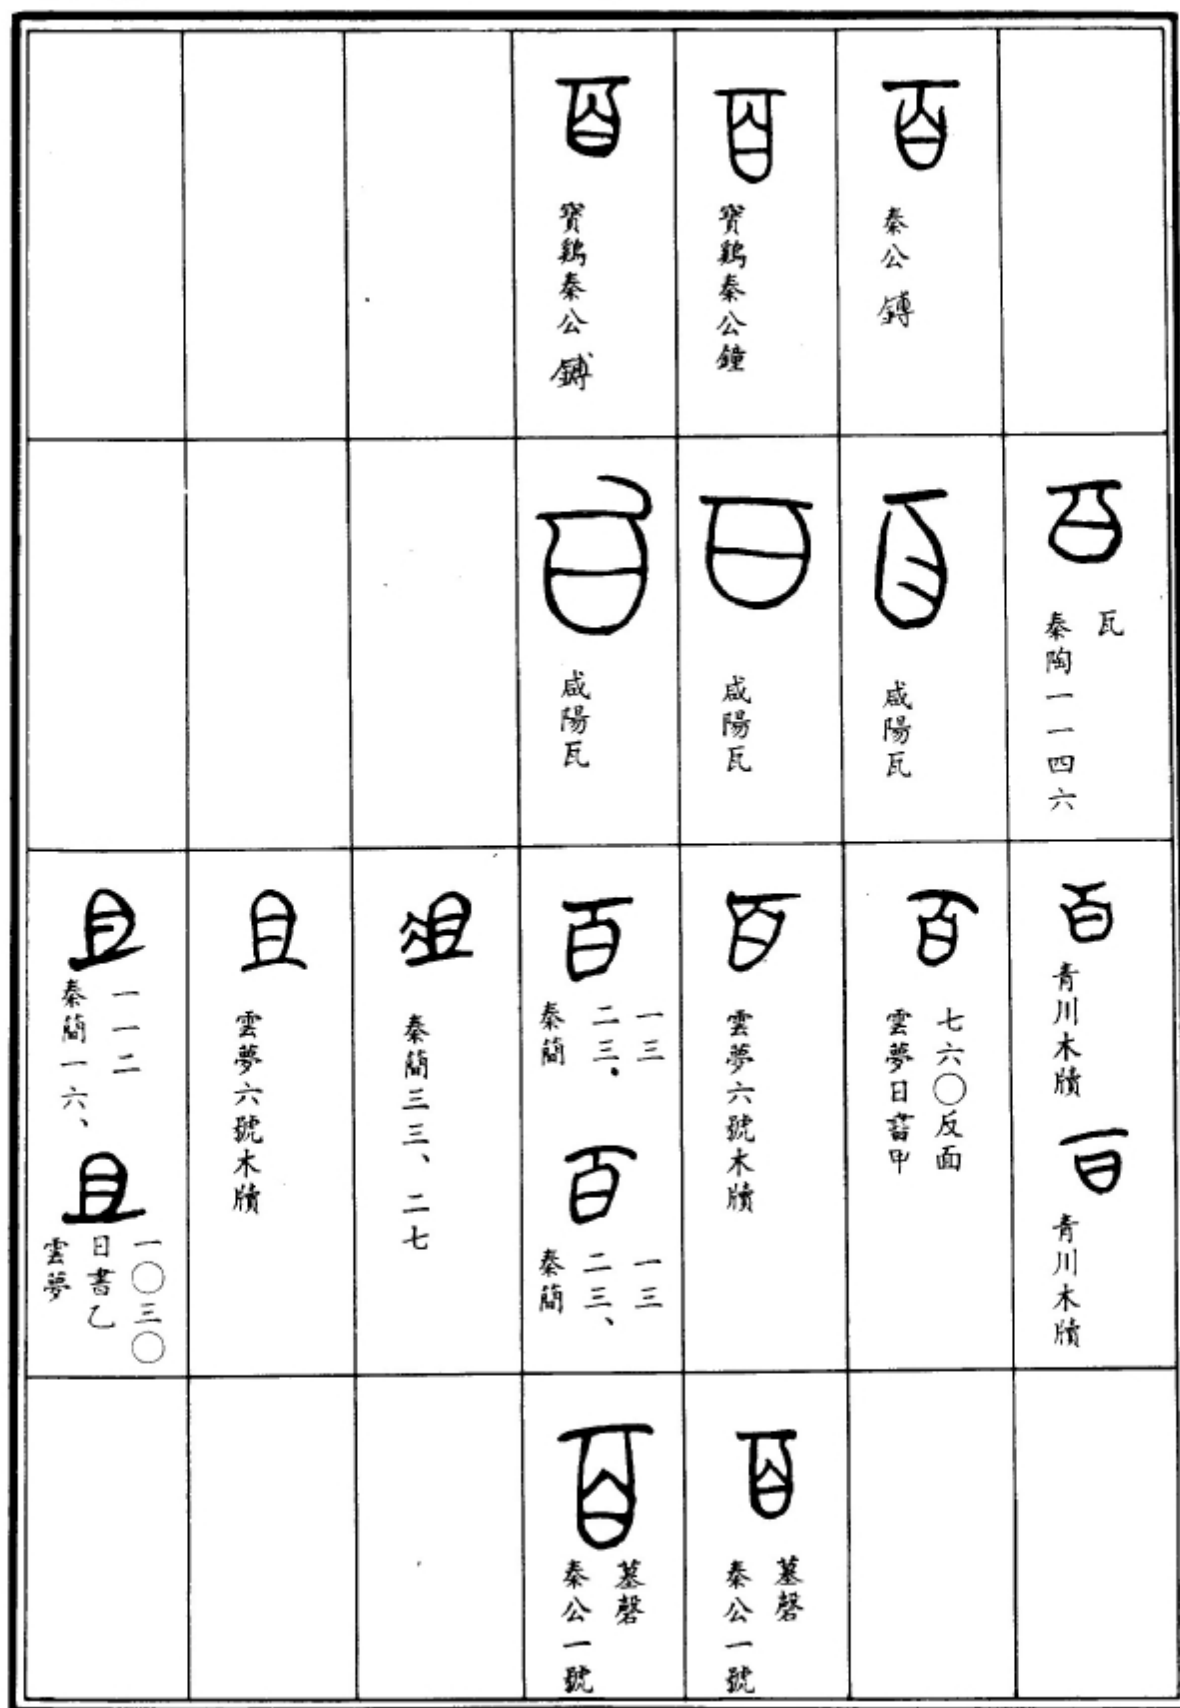 百
秦公鎛
百
寶鷄秦公鐘
百
寶鷄秦公鎛
百
秦陶一一四六
瓦
百
咸陽瓦
百
咸陽瓦
百
咸陽瓦
百
青川木牘
百
青川木牘
百
雲夢日書甲
七六〇反面
百
雲夢六號木牘
百
秦簡
二三、
一三
百
秦簡
二三、
一三
俎
秦簡三三、二七
且
雲夢六號木牘
且
秦簡一六、
一一二
且
雲夢
日書乙
一〇三〇
百
秦公一號
墓磬
百
秦公一號
墓磬